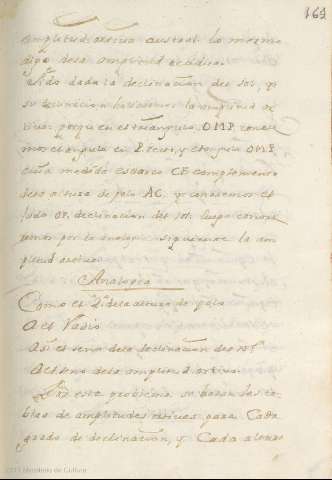 169
amplitud ortiva austral lo mesmo
digo dela amplitud occidua.
dada la declinacion del sol, y
su declinacion la amplitud or
tiva: porque en el triangulo OMP. conoce
mos el angulo en P. recto, y el angulo OMP.
cuia medida es el arco CE complemento
dela altura de polo AC. y conocemos el
lado OP. declinacion del sol. luego conoce
remos por la analogia siguiente la am
plitud ortiva.
Analogia
Como el 2º dela altura de polo
Al Radio
Asi el seno dela declinacion del sol
Al seno dela amplitud ortiva.
Por este problema se hacen las ta
blas de amplitudes ortivas para Cada
grado de declinacion, y Cada altura
2011 Ministerio de Cultura